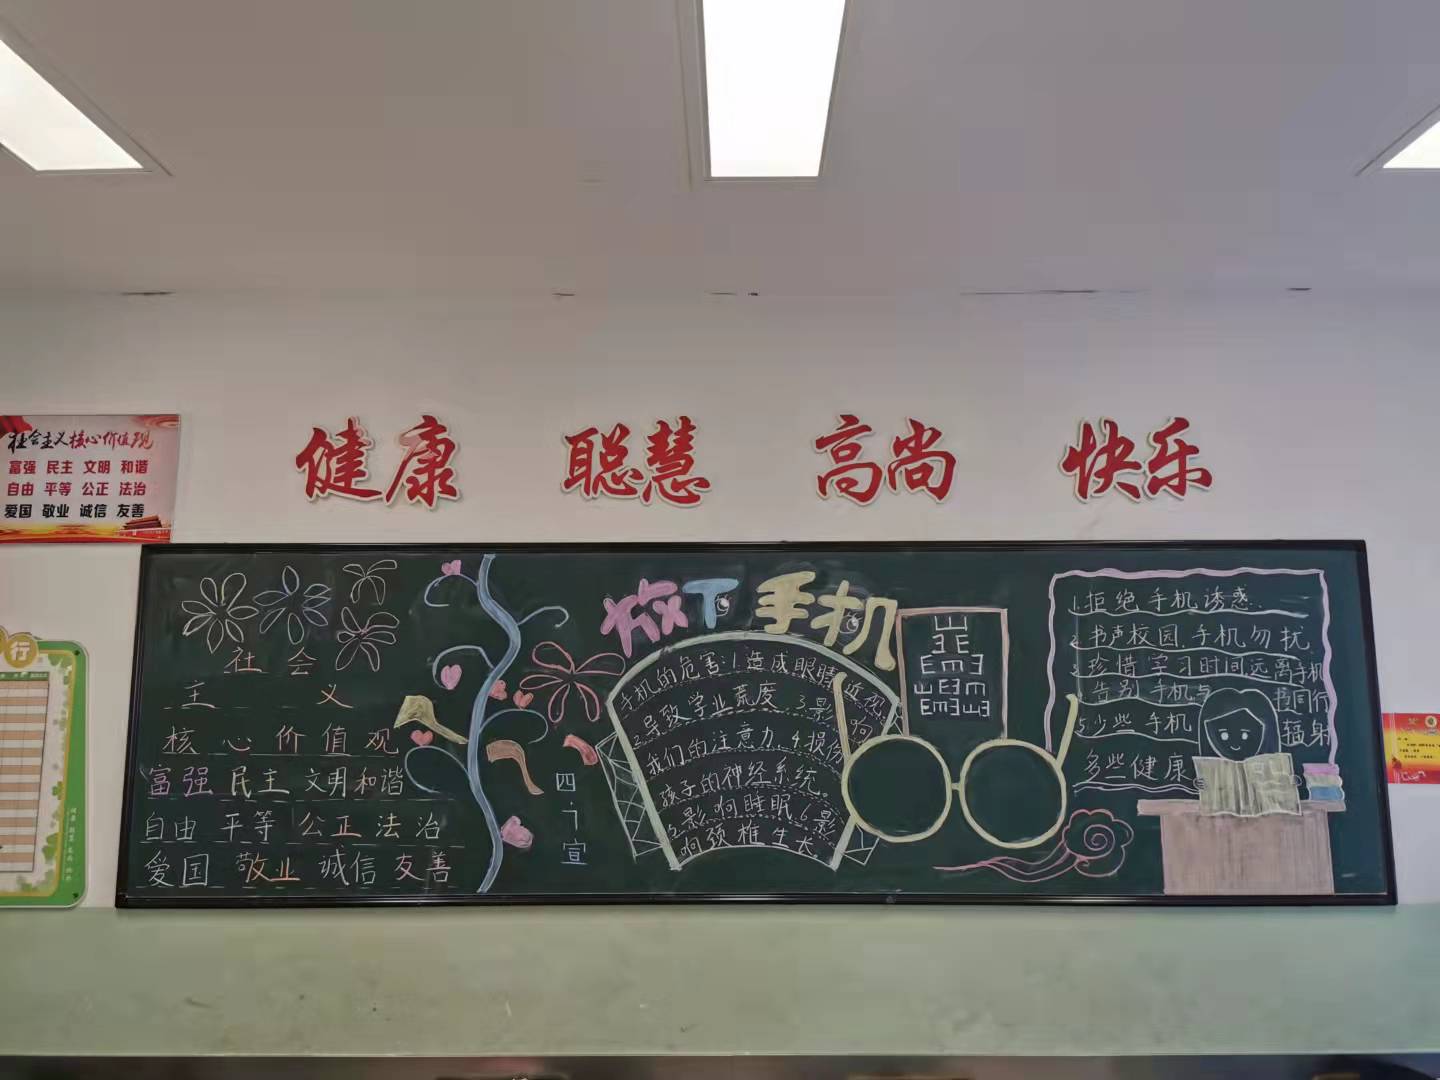 健康 聪慧 高尚 快乐
社会主义核心价值观
富强 民主 文明 和谐
自由 平等 公正 法治
爱国 敬业 诚信 友善
行
社会
主义
核心价值观
富强 民主 文明 和谐
自由 平等 公正 法治
爱国 敬业 诚信 友善
四
宣
放下手机
手机的危害:1.造成眼睛近视
2.导致学业荒废.3.影响
我们的注意力 4.损伤
孩子的神经系统。
5.影响睡眠 6.影
响颈椎生长。
山
ヨE
Emヨ
шEヨm
EmヨшヨE
1.拒绝手机诱惑.
2.书声校园.手机勿扰
3.珍惜学习时间远离手机
4.告别手机与书同行
5.少些手机辐射
多些健康